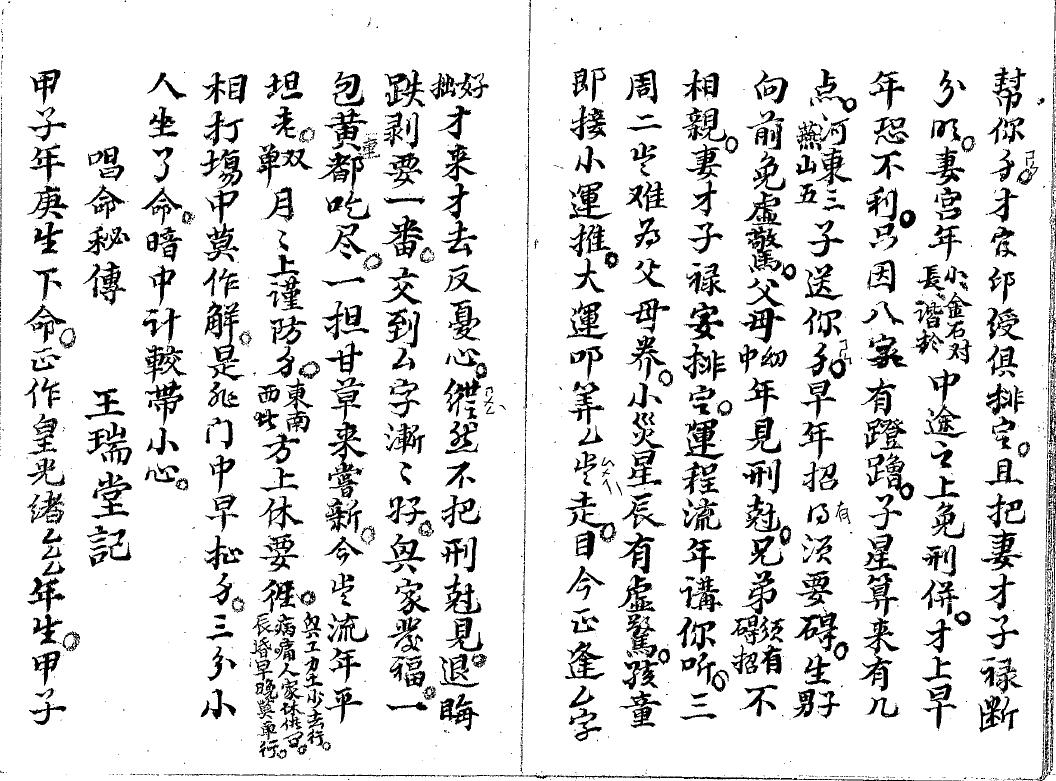 幇你手才官印綬俱排定。且把妻才子禄断
分明。妻宮年小長金石对諧於中途之上免刑併。才上早
年恐不利。只因八字有蹬蹭。子星算来有几
点。河東三燕山五子送你手。早年招得有须要碍。生男子
向前免虚驚。父母幼中年見刑尅。兄弟须有碍招不
相親。妻才子禄安排定。運程流年講你听。三
周二岁难為父母养。小災星辰有虚驚。孩童
即接小運推。大運叩算么岁走。目今正逢么字
好拙才来才去反憂心。縱然不把刑尅見退晦
跌剥要一番。交到么字漸〻好。興家發福。一
包黄都吃尽。一担甘草来嘗新。今岁流年平
坦老。双單月〻上謹防手。東南西北方上休要徃。興工力土少去行。病痛人家休供司。辰昏早晚莫單行。
相打塲中莫作解。是非门中早抽手。三分小
人坐了命。暗中计較帶小心。
唱命秘傳 王瑞堂記
甲子年庚生下命。正作皇光緒乙乙年生。甲子